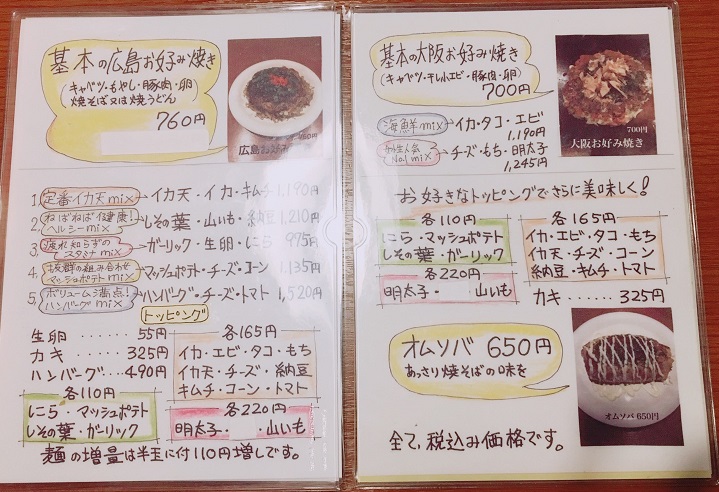 基本の広島お好み焼き
(キャベツ・もやし・豚肉・卵)
焼そば又は焼うどん
760円
広島お好み
1. 定番イカ天mix イカ天・イカ・キムチ 1,190円
2. ねばねば健康!ヘルシーmix しその葉・山いも・納豆 1,210円
3. 疲れ知らずのスタミナmix ガーリック・生卵・にら 995円
4. 抜群の組み合わせマッシュポテトmix マッシュポテト・チーズ・コーン 1,135円
5. ボリューム満点!ハンバーグmix ハンバーグ・チーズ・トマト 1,520円
トッピング
生卵 ..... 55円
カキ ..... 325円
ハンバーグ .... 490円
各165円
イカ・エビ・タコ・もち
イカ天・チーズ・納豆
キムチ・コーン・トマト
各110円
にら・マッシュポテト
しその葉・ガーリック
各220円
明太子・ 山いも
麺の増量は半玉に付110円増しです。
基本の大阪お好み焼き
(キャベツ・干し小エビ・豚肉・卵)
700円
700円
大阪お好み焼き
海鮮mix イカ・タコ・エビ
1,190円
No.1 mix チーズ・もち・明太子
1,245円
お好きなトッピングでさらに美味しく!
各110円
にら・マッシュポテト
しその葉・ガーリック
各220円
明太子 山いも
各165円
イカ・エビ・タコ・もち
イカ天・チーズ・コーン
納豆・キムチ・トマト
カキ .... 325円
オムソバ 650円
あっさり焼そばの味を
オムソバ 650円
全て、税込み価格です。